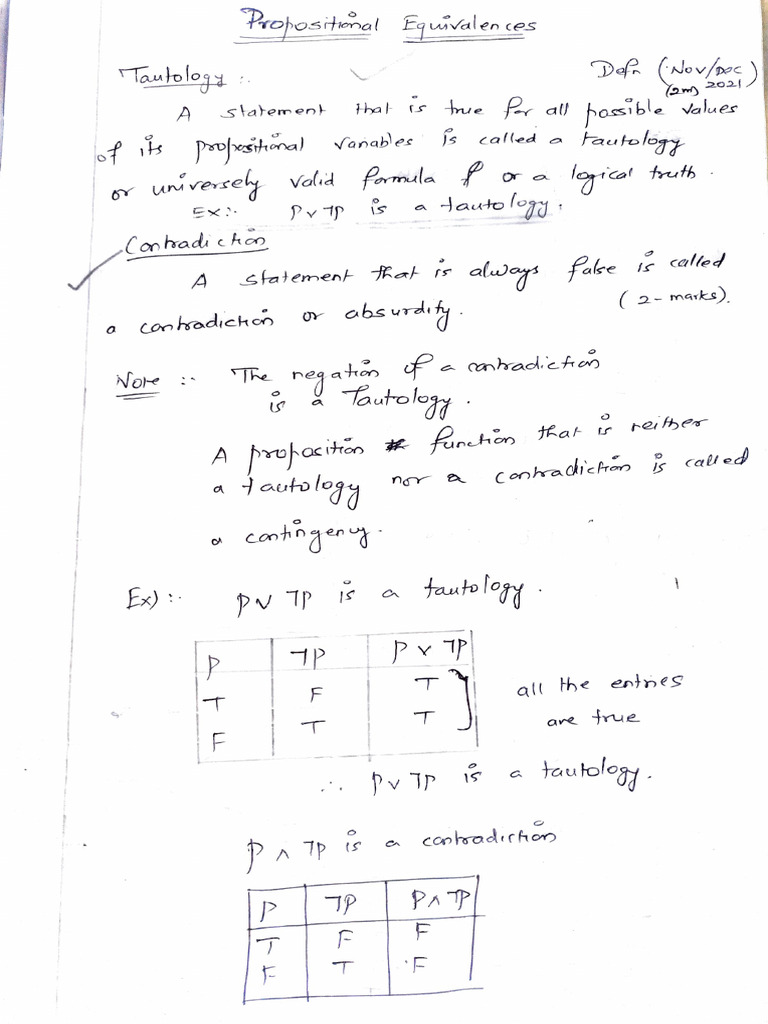 Propositional Equivalences
Tautology :- Defn (Nov/Dec)
(2m) 2021
A statement that is true for all possible values
of its propositional variables is called a tautology
or universely valid formula or a logical truth.
Ex:- P ∨ ¬P is a tautology.
Contradiction
A statement that is always false is called
a contradiction or absurdity. (2-marks).
Note :- The negation of a contradiction
is a Tautology.
A proposition function that is neither
a tautology nor a contradiction is called
a contingency.
Ex) :- P ∨ ¬P is a tautology.
P ¬P P ∨ ¬P
T F T all the entries
F T T are true
∴ P ∨ ¬P is a tautology.
P ∧ ¬P is a contradiction
P ¬P P ∧ ¬P
T F F
F T F